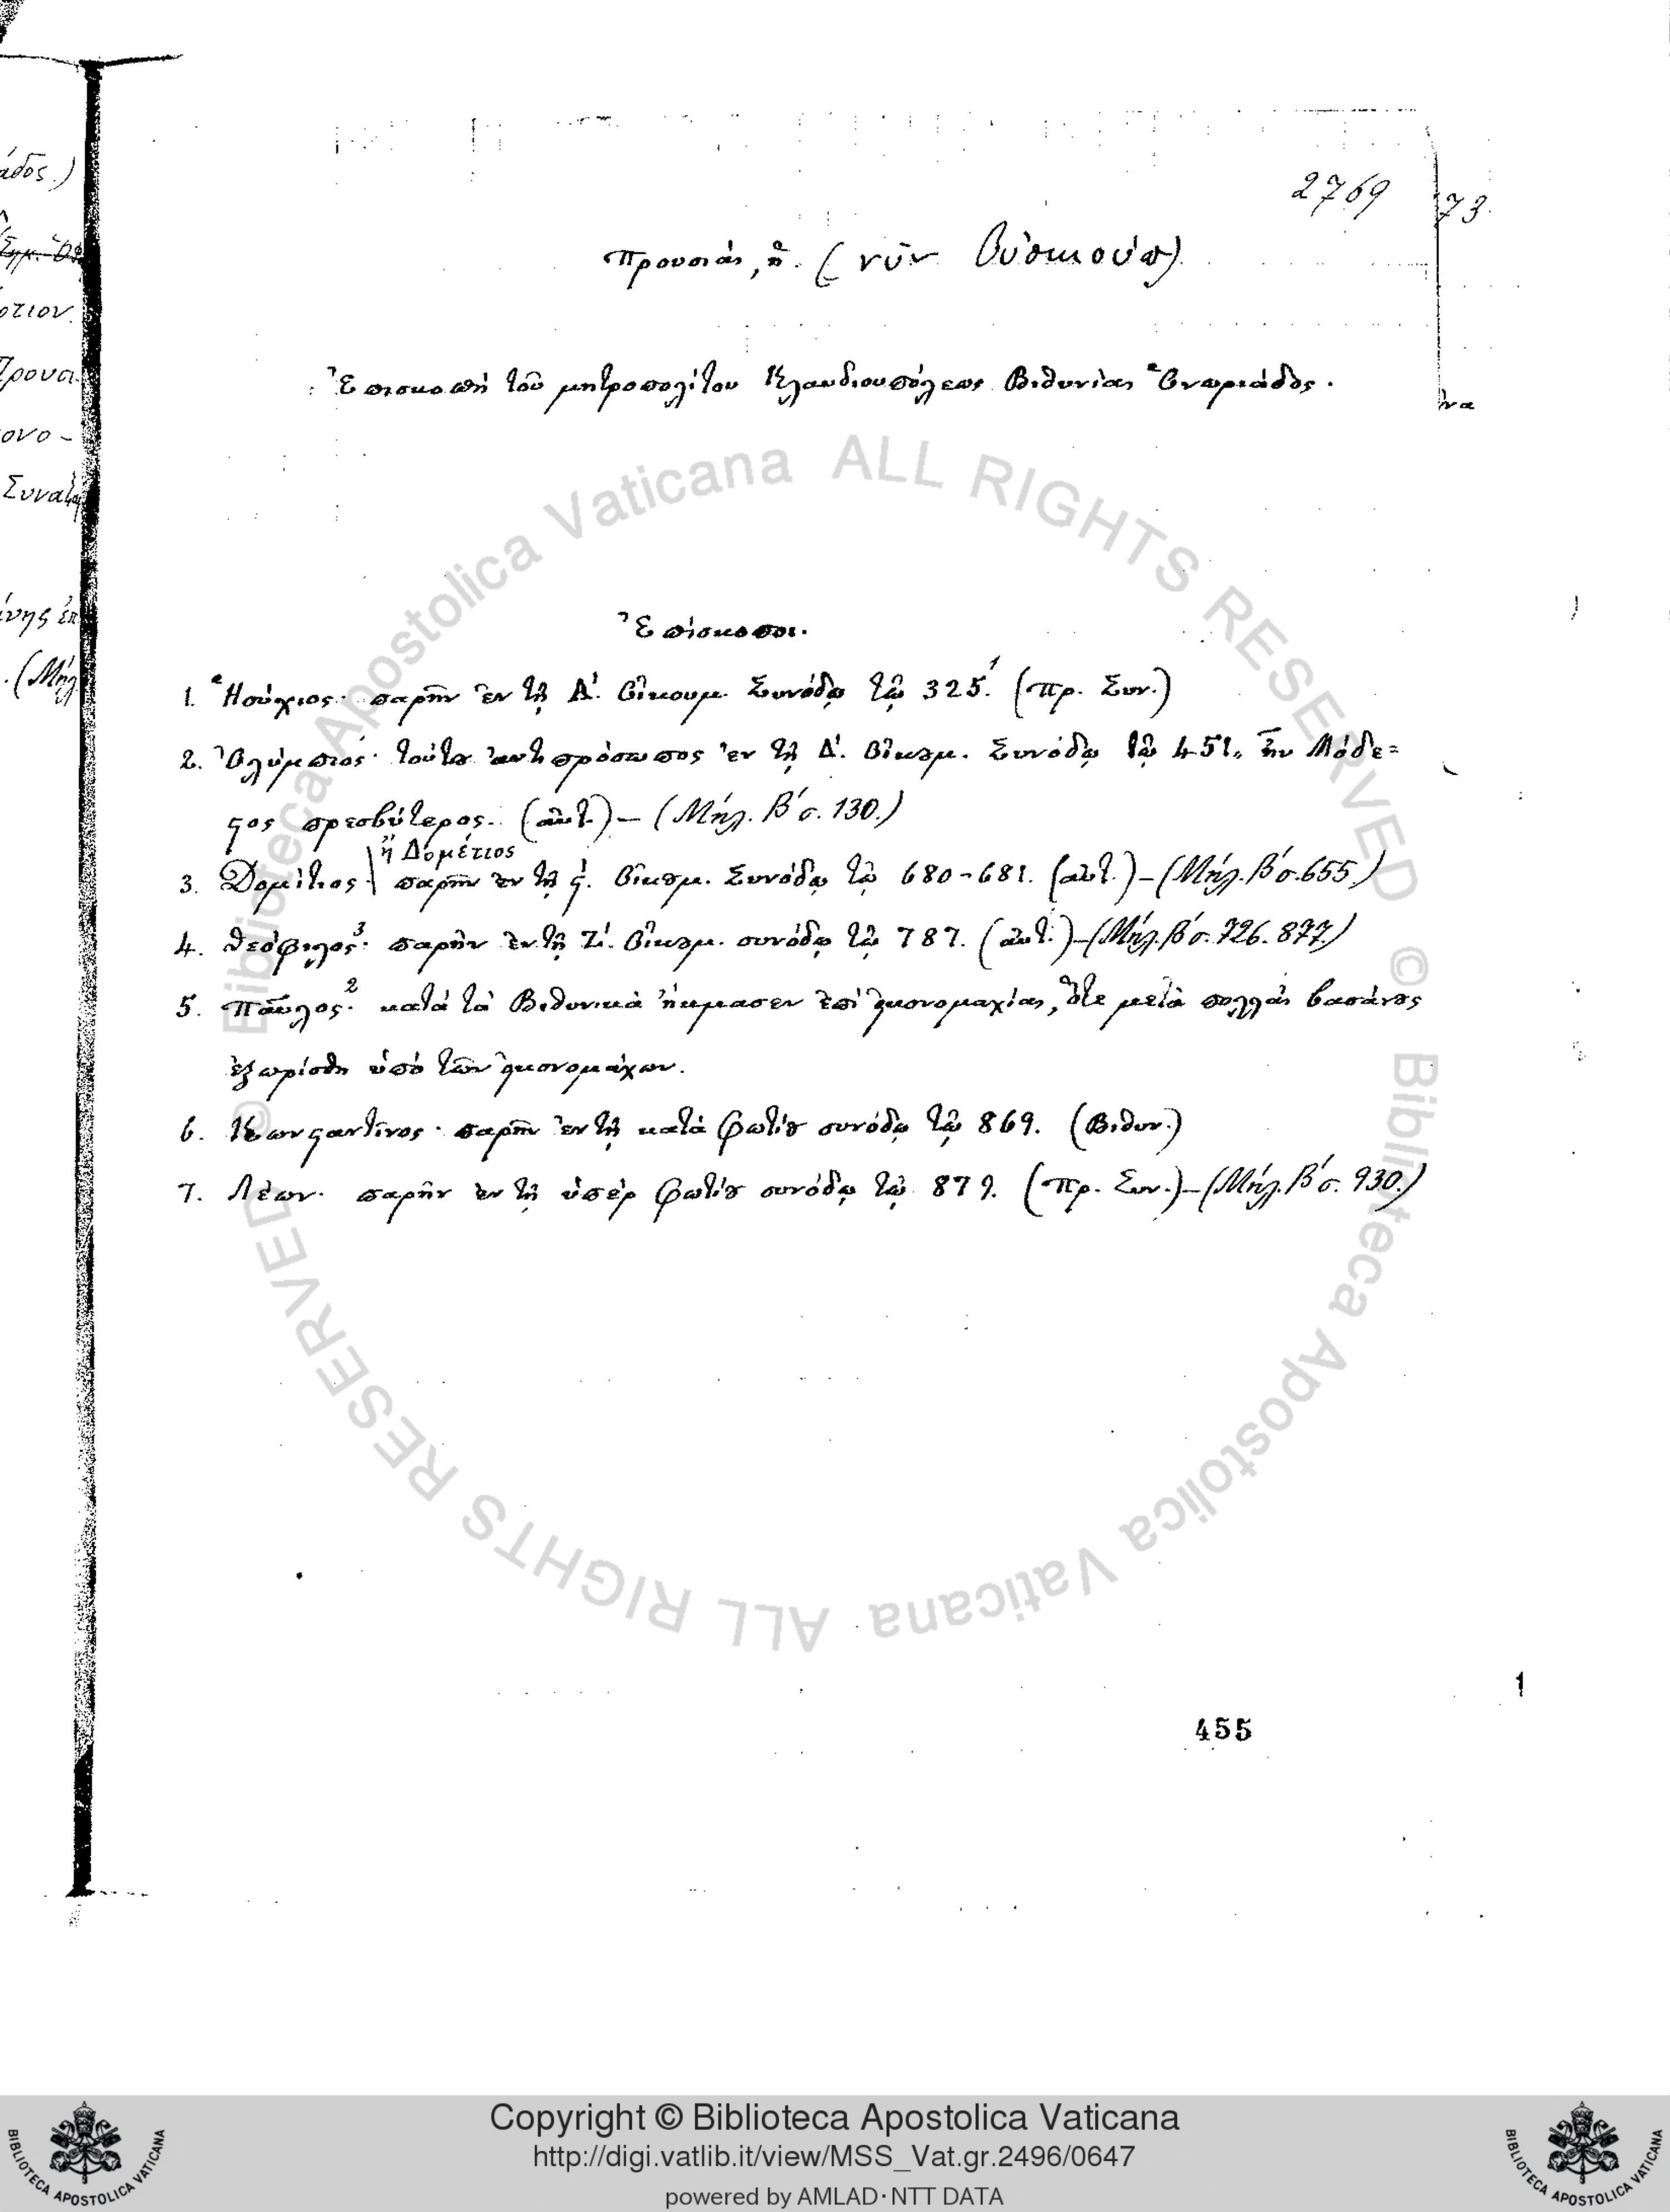 2769
73.
Προυσιάς, ἡ. (νῦν Οὐσκιούπ)
Ἐπισκοπὴ τοῦ μητροπολίτου Κλαυδιουπόλεως Βιθυνίας Ὁνωριάδος.
Ἐπίσκοποι.
1. Ἡσύχιος· παρῆν ἐν τῇ Α΄. Οἰκουμ. Συνόδῳ τῷ 325. (Πρ. Συν.)
2. Ὀλύμπιος· τούτου ἀντιπρόσωπος ἐν τῇ Δ΄. Οἰκουμ. Συνόδῳ τῷ 451. ἦν Μόδε=
στος πρεσβύτερος. (αὐτ.) – (Μήλ. Β΄ σ. 130.)
ἢ Δομέτιος
3. Δομίτιος· παρῆν ἐν τῇ ϛ΄. Οἰκουμ. Συνόδῳ τῷ 680-681. (αὐτ.) – (Μήλ. Β΄ σ. 655.)
4. Θεόφιλος³· παρῆν ἐν τῇ Ζ΄. Οἰκουμ. συνόδῳ τῷ 787. (αὐτ.) – (Μήλ. Β΄ σ. 726. 877.)
5. Παῦλος²· κατὰ τὰ Βιθυνικὰ ἤκμασεν ἐπὶ εἰκονομαχίας, ὅτε μετὰ πολλὰς βασάνους
ἐξωρίσθη ὑπὸ τῶν εἰκονομάχων.
6. Κωνσταντῖνος· παρῆν ἐν τῇ κατὰ Φωτίου συνόδῳ τῷ 869. (Βιθυν.)
7. Λέων· παρῆν ἐν τῇ ὑπὲρ Φωτίου συνόδῳ τῷ 879. (Πρ. Συν.) – (Μήλ. Β΄ σ. 930.)
455
© Biblioteca Apostolica Vaticana ALL RIGHTS RESERVED
© Biblioteca Apostolica Vaticana ALL RIGHTS RESERVED
Copyright © Biblioteca Apostolica Vaticana
http://digi.vatlib.it/view/MSS_Vat.gr.2496/0647
powered by AMLAD·NTT DATA
BIBLIOTECA APOSTOLICA VATICANA
BIBLIOTECA APOSTOLICA VATICANA